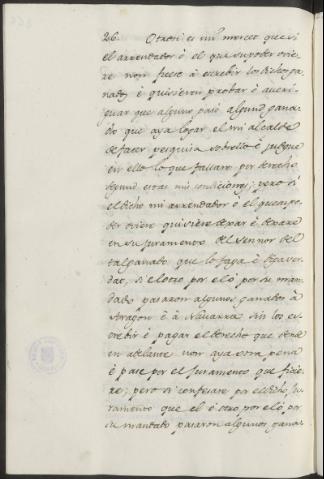 26. Otrosi es mi merced que si
el arrendador ó el que su poder ovie-
re non fuere à escrebir los dichos ga-
nados é quisieren probar é averi-
guar que alguno pasó algund gana-
do que aya logar el mi alcalde
de facer pesquisa sobrello é judgue
en ello lo que fallare por derecho
segund estas mis condiciones; pero si
el dicho mi arrendador ó el que su po-
der oviere quisiere dexar é dexare
en su juramento del Sennor del
tal ganado que lo faga é diga ver-
dat, si el otro por el ó por su man-
dado pasaron algunos ganados à
Aragon é à Navarra sin los es-
crebir é pagar el derecho que dende
en adelante non aya otra pena
é pase por el juramento que ficie-
re; pero si confesare por el dicho ju-
ramento que el ó otro por el ó por
su mandato pasaron algunos gana-